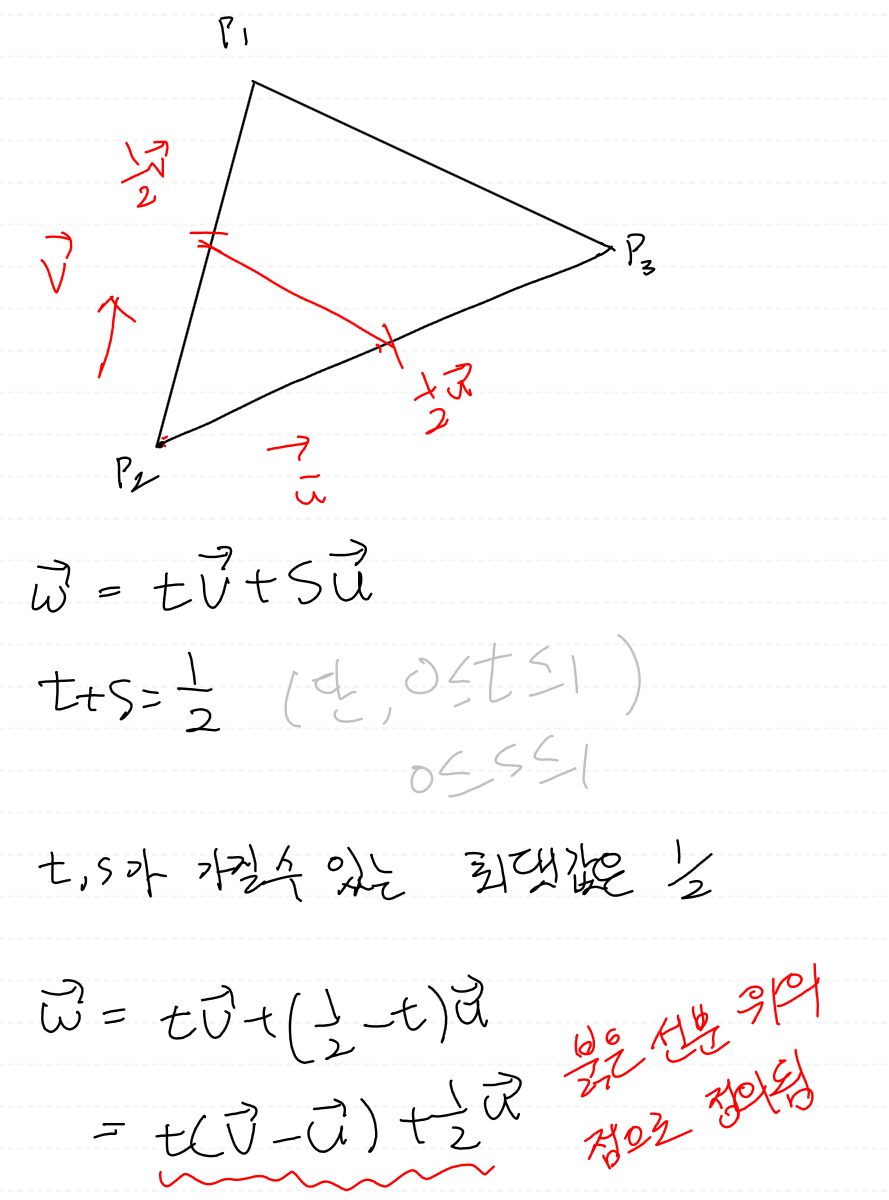 P1
1/2 v⃗
v⃗
P3
1/2 u⃗
P2
u⃗
w⃗ = tv⃗ + su⃗
t+s = 1/2 (단, 0≤t≤1)
0≤s≤1
t,s가 가질수 있는 최댓값은 1/2
w⃗ = tv⃗ + (1/2 - t)u⃗
= t(v⃗ - u⃗) + 1/2 u⃗
붉은 선분 위의
점으로 정의됨